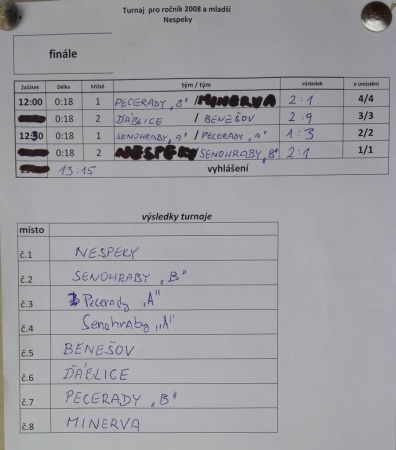 Turnaj pro ročník 2008 a mladší
Nespeky
finále
Začátek Délka hřiště tým / tým výsledek o umístění
12:00 0:18 1 PECERADY „B“ / MINERVA 2:1 4/4
0:18 2 ĎÁBLICE / BENEŠOV 2:9 3/3
12:30 0:18 1 SENOHRABY „A“ / PECERADY „A“ 1:3 2/2
0:18 2 NESPEKY SENOHRABY „B“ 2:1 1/1
13:15 vyhlášení
výsledky turnaje
místo
č.1 NESPEKY
č.2 SENOHRABY „B“
č.3 Pecerady „A“
č.4 Senohraby „A“
č.5 BENEŠOV
č.6 ĎÁBLICE
č.7 PECERADY „B“
č.8 MINERVA